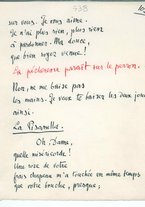 538
sur vous. Je vous aime.
Je n'ai plus rien, plus rien
à pardonner. Ma douce,
que bien soyez venue !
La pécheresse paraît sur le perron.
Non, ne me baise pas
les mains. Je veux te baiser les deux joues
ainsi.
La Pisanelle.
Oh Dame,
quelle miséricorde !
Une rose de votre
frais chapeau m'a touchée en même temps
que votre bouche, presque ;